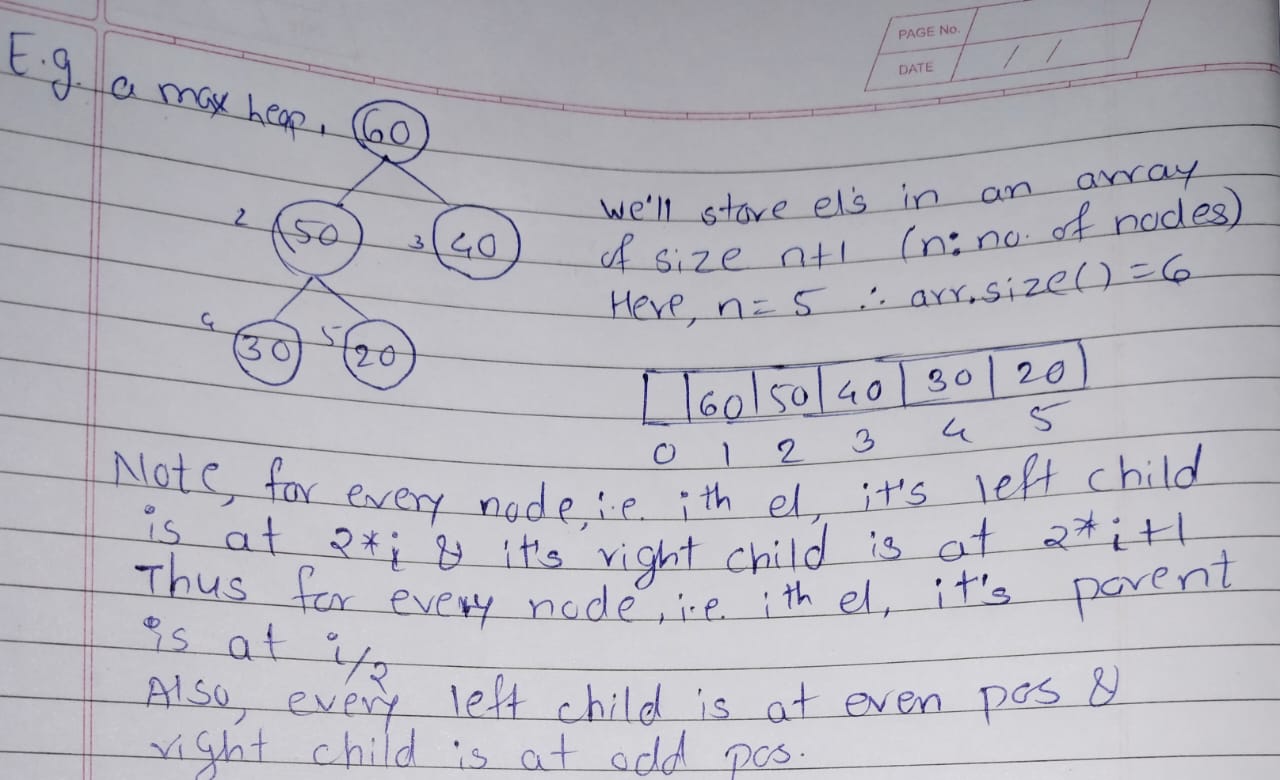 PAGE No.
DATE / /
E.g. a max heap,
60
2 50 3 40
4 30 5 20
We'll store el's in an array
of size n+1 (n: no. of nodes)
Here, n = 5 ∴ arr.size() = 6
60 50 40 30 20
0 1 2 3 4 5
Note, for every node, i.e. ith el, it's left child
is at 2*i & it's right child is at 2*i+1
Thus for every node, i.e. ith el, it's parent
is at i/2
Also, every left child is at even pos &
right child is at odd pos.